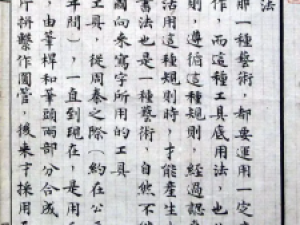 法
那一種藝術，都要運用一定
作，而這種工具底用法，也
則，遵循這種規則，經過認
活用這種規則時，才能產生
書法也是一種藝術，自然不
國向來寫字所用的工具
工具 從周秦之際（約在公
年間），一直到現在，是用
，由筆桿和筆頭兩部分合成
片拼繫作圓管，後來才採用